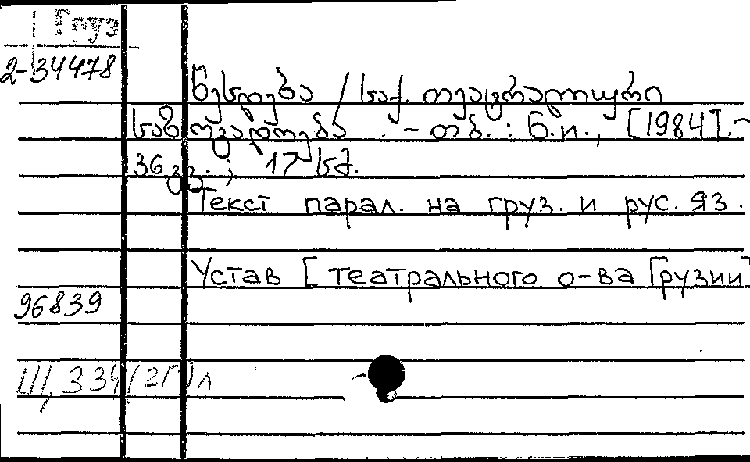 Груз
2-34478
წესდება / საქ. თეატრალური
საზოგადოება. – თბ. : Б.и., [1984]. –
36 გვ. ; 17 სმ.
Текст парал. на груз. и рус. яз.
Устав [театрального о-ва Грузии]
96839